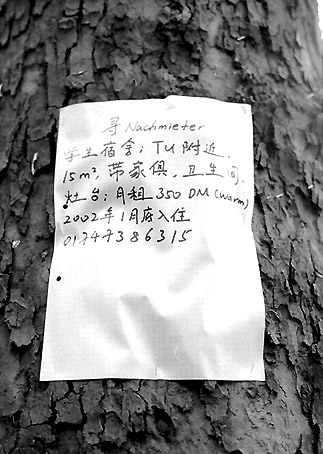 寻 Nachmieter
学生宿舍; TU 附近.
15m², 带家俱, 卫生间,
灶台; 月租 350 DM (warm)
2002年1月底入住
01747386315